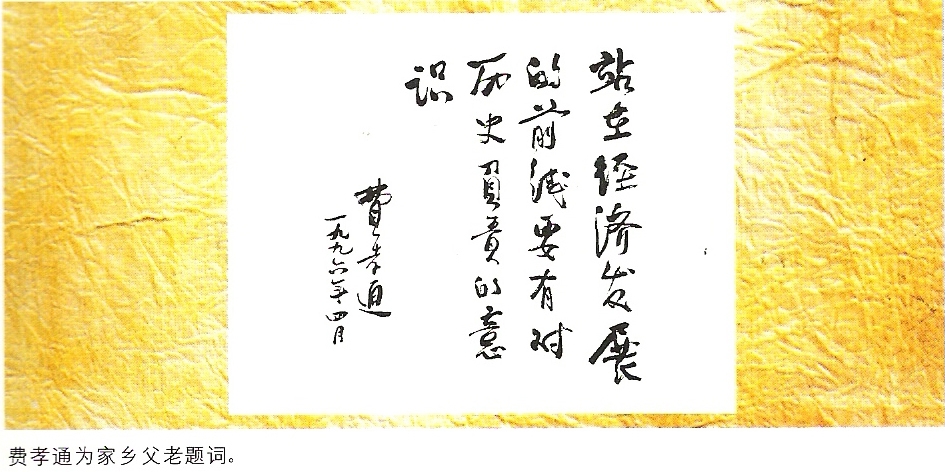 站在经济发展
的前线要有对
历史負责的意
识
费孝通
一九九六年四月
费孝通为家乡父老题词。